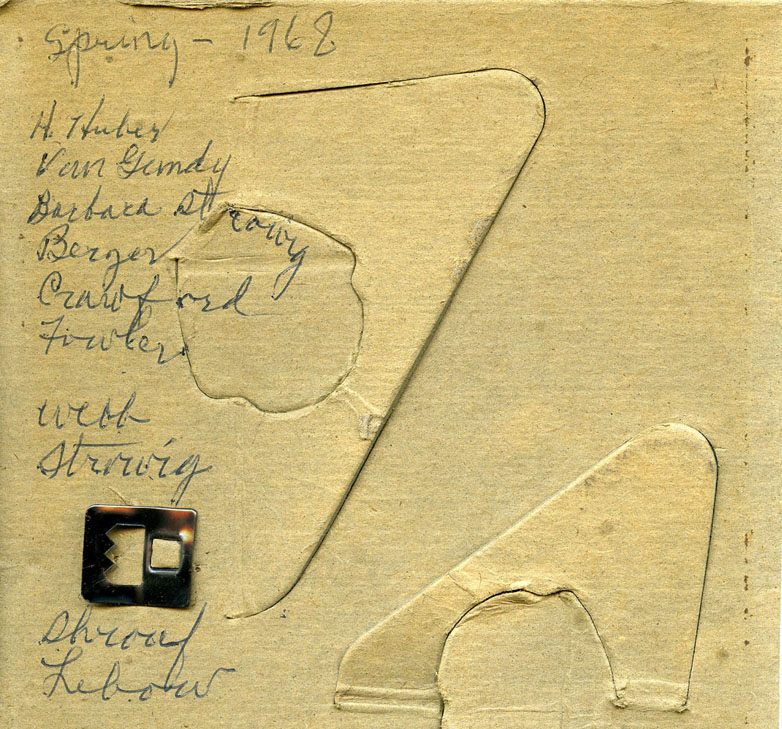 Spring - 1962
H. Huber
Van Gundy
Barbara Strowig
Berger
Crawford
Fowler
Webb
Strowig
Shroaf
Lebow